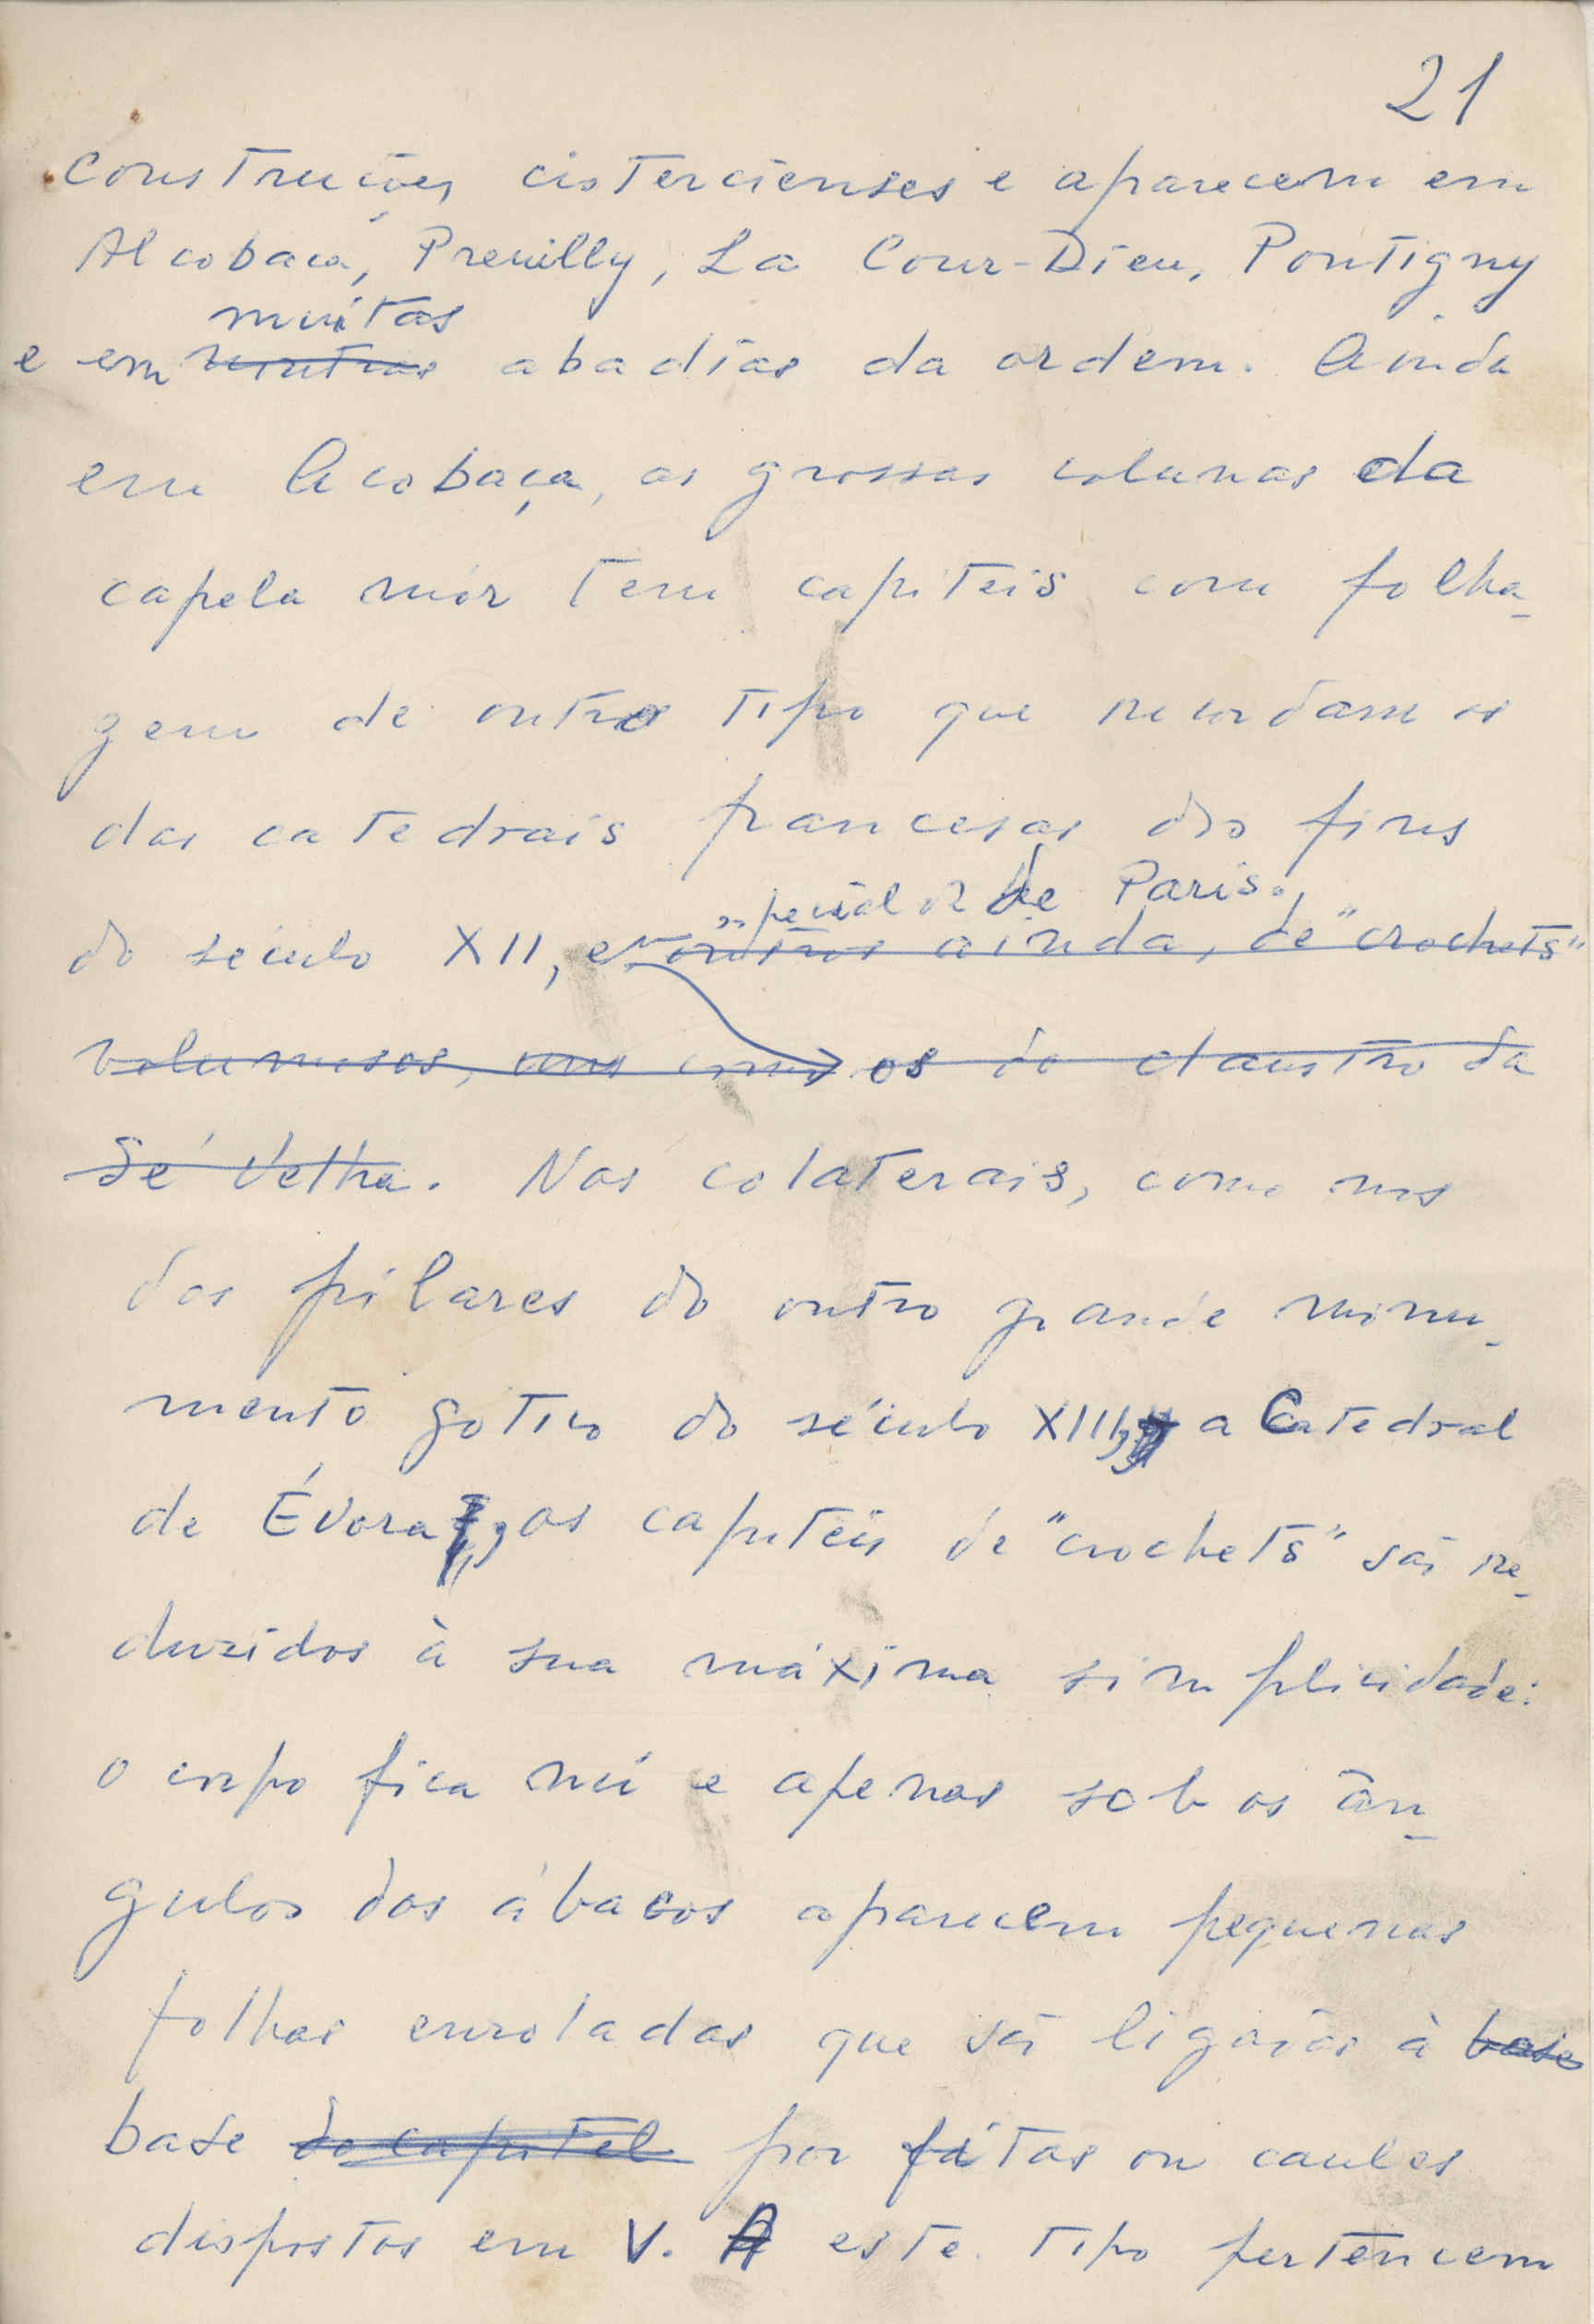 21
construções cistercienses e aparecem em
Alcobaça, Preuilly, La Cour-Dieu, Pontigny
muitas
e em outras abadias da ordem. Ainda
em Acobaça, as grossas colunas da
capela mór tem capiteis com folha-
gem de outro tipo que recordam os
das catedrais francesas do fins
especial os de Paris.
do século XII, em outros ainda, de "crochets"
volumosos, uns como os do claustro da
Sé Velha. Nos colaterais, como nos
dos pilares do outro grande monu-
mento gotico do século XIII, a Catedral
de Évora, os capiteis de "crochets" são re-
duzidos à sua máxima simplicidade:
o corpo fica nú e apenas sob os ân-
gulos dos ábacos aparecem pequenas
folhas enroladas que são ligadas à base
base do capitel por fitas ou caules
dispostos em V. A este tipo pertencem